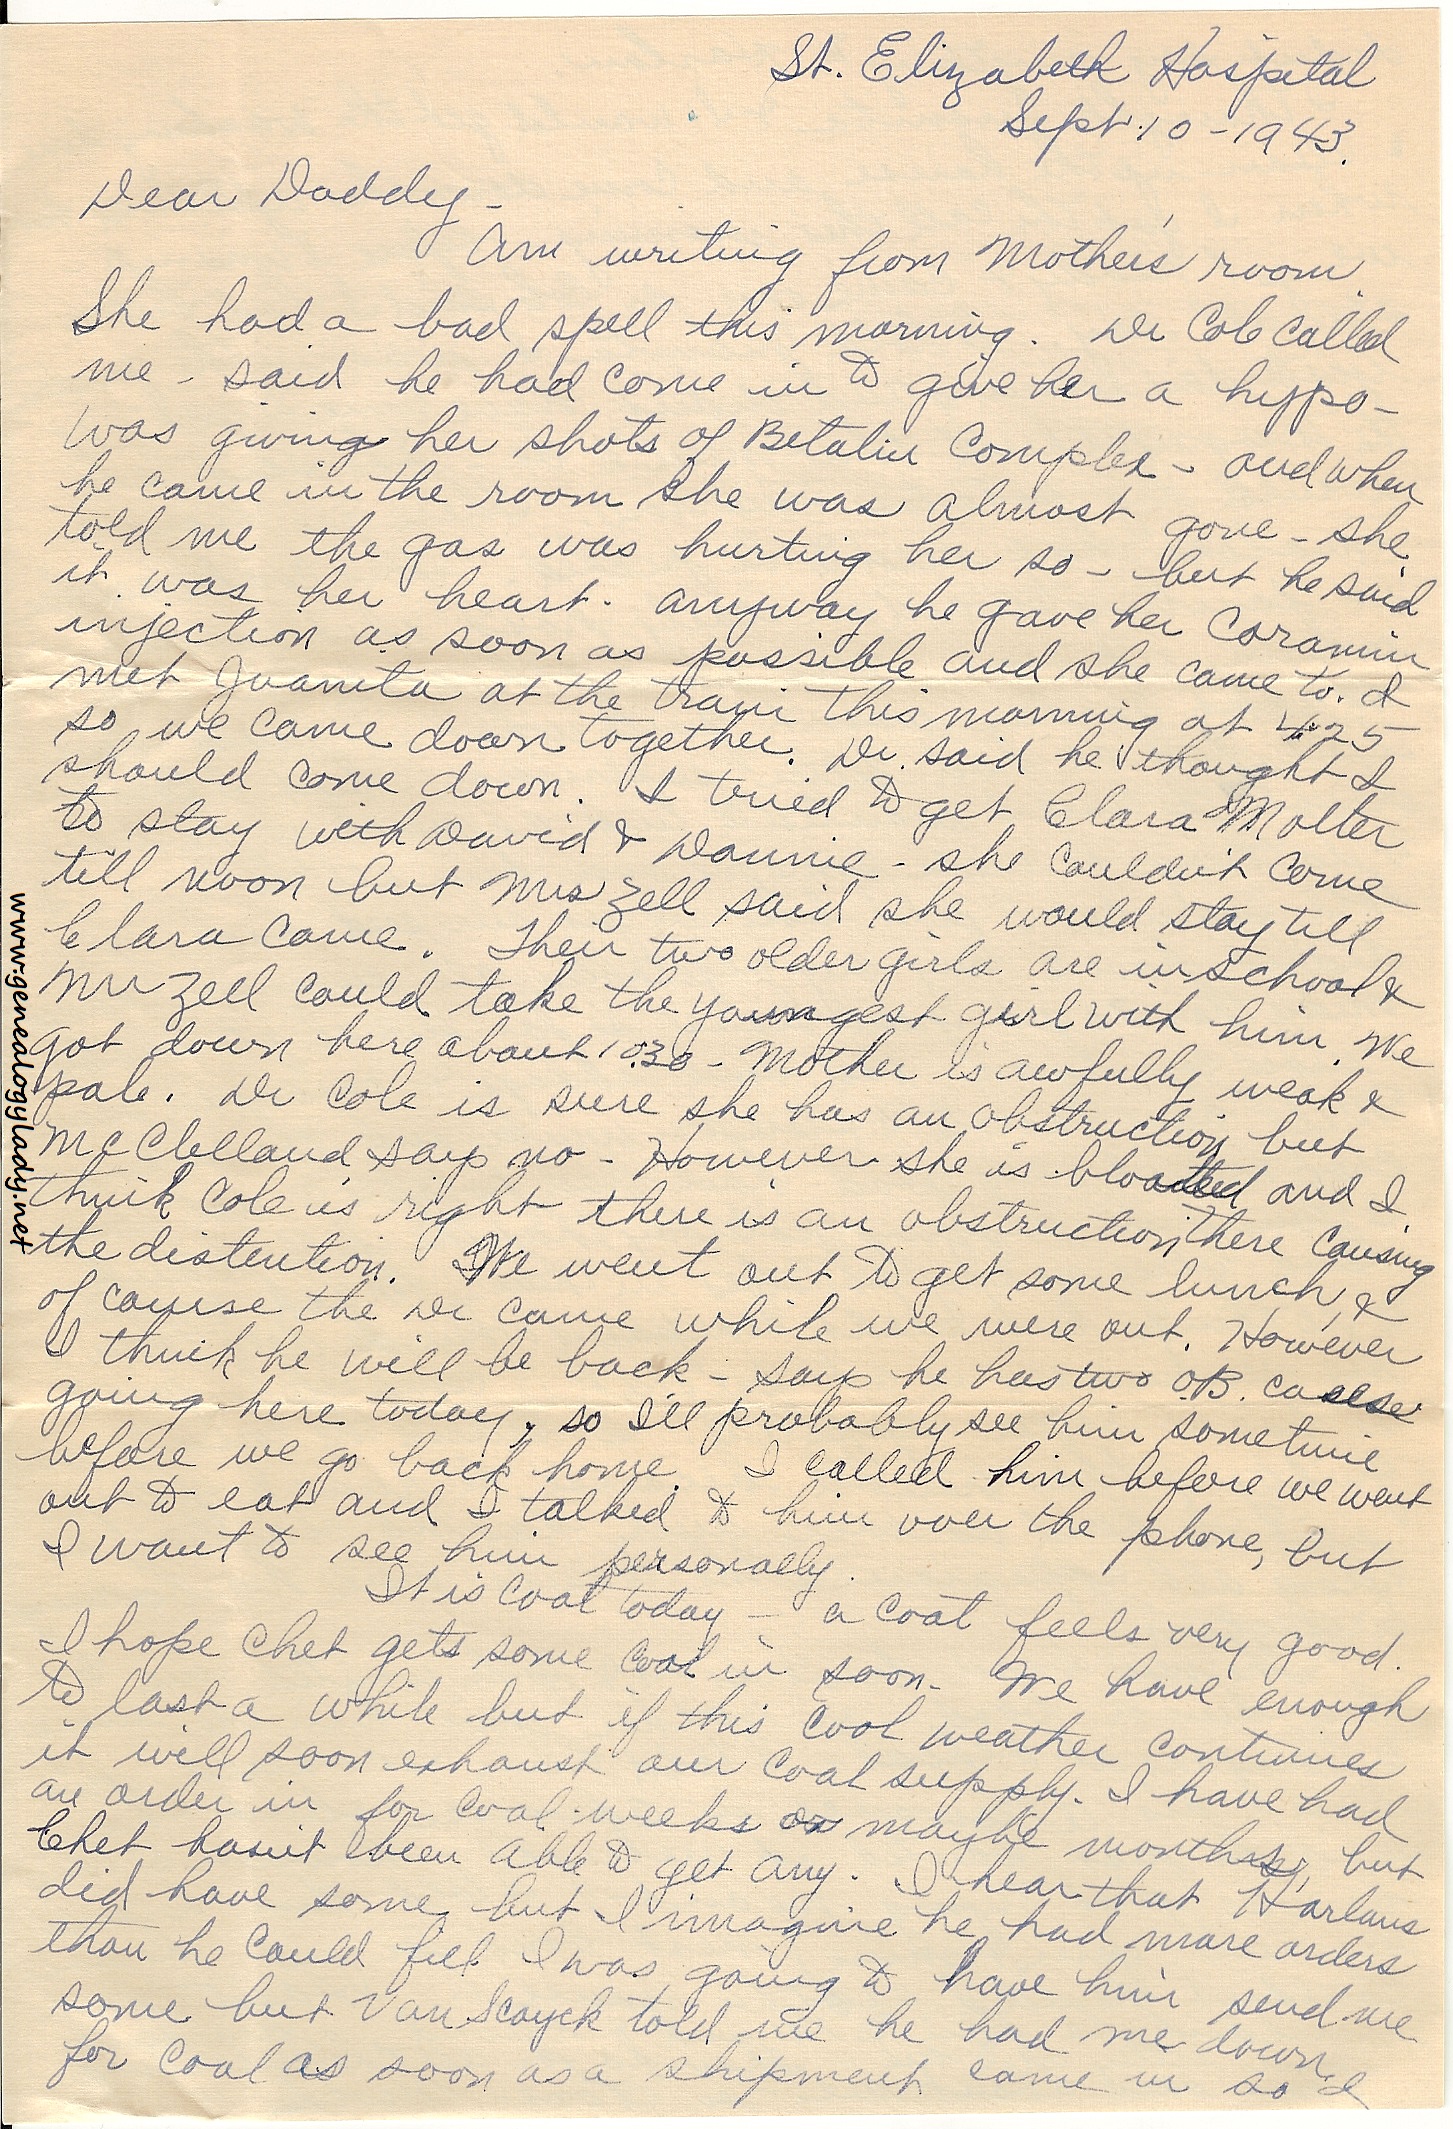 St. Elizabeth Hospital
Sept. 10 - 1943.
Dear Daddy -
Am writing from Mother's room.
She had a bad spell this morning. Dr Cole called
me - said he had come in to give her a hypo -
was giving her shots of Betalin Complex - and when
he came in the room she was almost gone - she
told me the gas was hurting her so - but he said
it was her heart. Anyway he gave her Coramin
injection as soon as possible and she came to. I
met Juanita at the train this morning at 4:25
so we came down together. Dr. said he thought I
should come down. I tried to get Clara Molter
to stay with David & Dannie - she couldn't come
till noon but Mrs Zell said she would stay till
Clara came. Their two older girls are in school &
Mr Zell could take the youngest girl with him. We
got down here about 10:30 - Mother is awfully weak &
pale. Dr Cole is sure she has an obstruction but
McClelland says no - However she is bloated and I
think Cole is right there is an obstruction there causing
the distention. We went out to get some lunch, &
of course the Dr came while we were out. However
I think he will be back - says he has two OB. cases
going here today, so I'll probably see him sometime
before we go back home. I called him before we went
out to eat and I talked to him over the phone, but
I want to see him personally.
It is cool today - a coat feels very good.
I hope Chet gets some coal in soon. We have enough
to last a while but if this cool weather continues
it will soon exhaust our coal supply. I have had
an order in for coal weeks or maybe months, but
Chet hasn't been able to get any. I hear that Harlans
did have some but I imagine he had more orders
than he could fill. I was going to have him send me
some but Van Scoyck told me he had me down
for coal as soon as a shipment came in so I
www.genealogylady.net